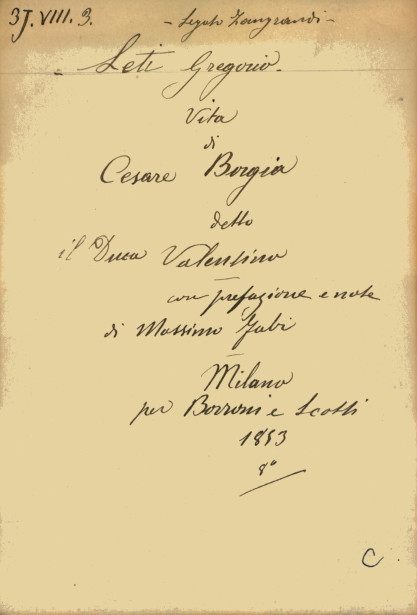 3J. VIII. 3. - Legato Zangrandi -
- Leti Gregorio.
Vita
di
Cesare Borgia
detto
il Duca Valentino
con prefazione e note
di Massimo Fabi
Milano
per Borroni e Scotti
1853
8°
C